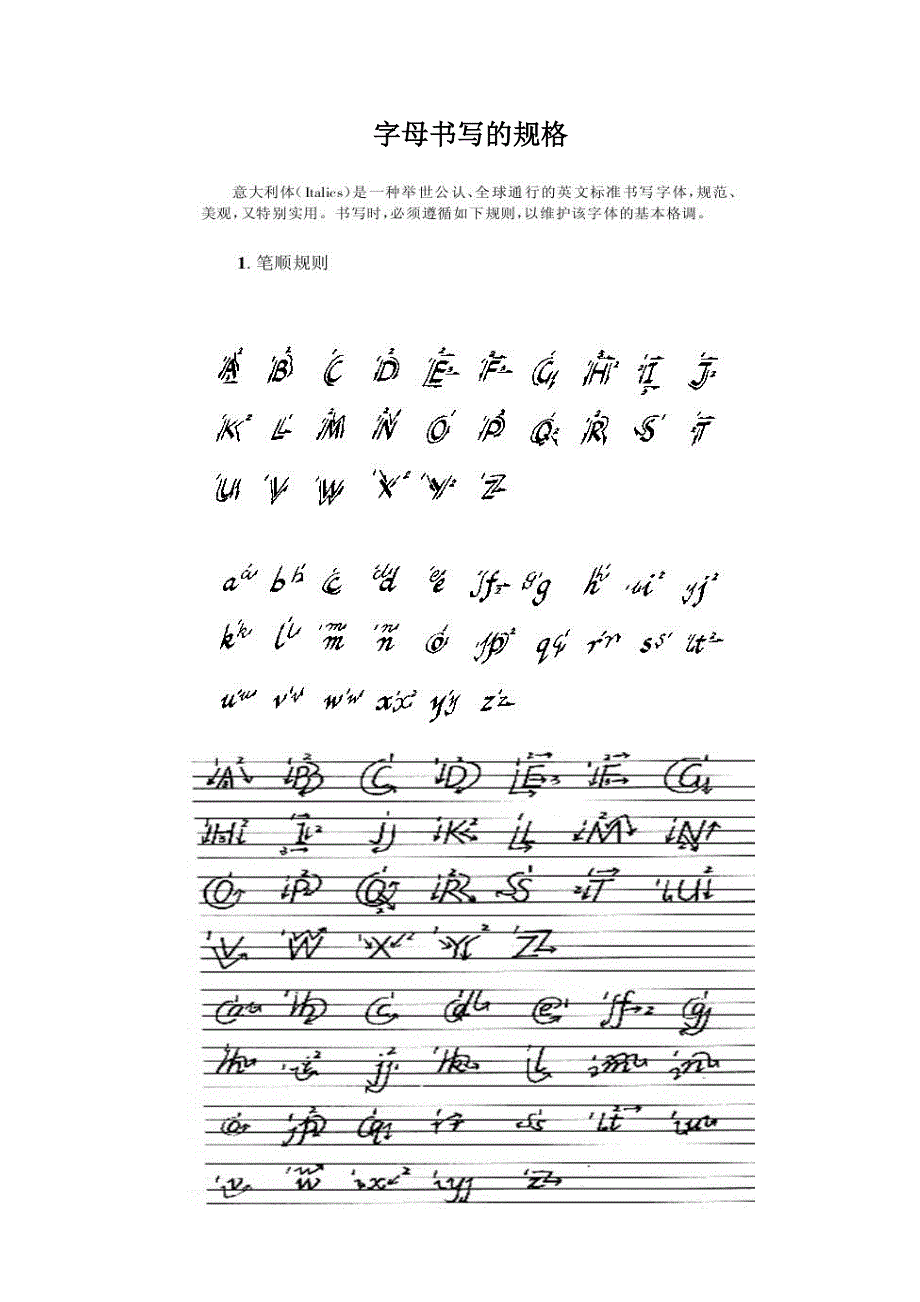 字母书写的规格
意大利体(Italics)是一种举世公认、全球通行的英文标准书写字体,规范、
美观,又特别实用。书写时,必须遵循如下规则,以维护该字体的基本格调。
1. 笔顺规则
A B C D E F G H I J
K L M N O P Q R S T
U V W X Y Z
a b c d e f g h i j
k l m n o p q r s t
u v w x y z
A B C D E F G
H I J K L M N
O P Q R S T U
V W X Y Z
a b c d e f g
h i j k l m n
o p q r s t u
v w x y z